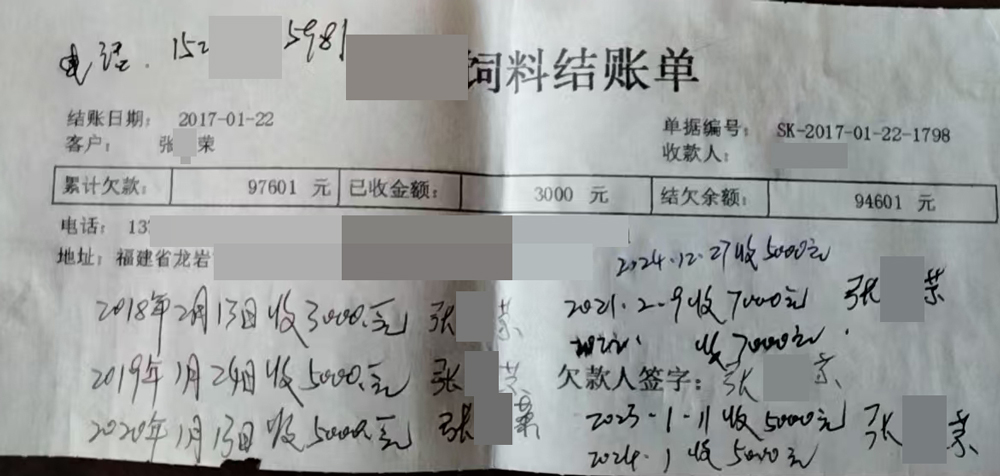 电话. 152 5981
饲料结账单
结账日期: 2017-01-22
单据编号: SK-2017-01-22-1798
客户: 张 荣
收款人:
累计欠款: 97601 元 已收金额: 3000 元 结欠余额: 94601 元
电话: 137
地址: 福建省龙岩
2024.12.27收5000元
2018年2月13日收3000.元 张 荣
2021.2-9收7000元 张 荣
收7000元
2019年1月24日收5000.元 张 荣
欠款人签字: 张 荣
2020年1月13日收5000.元 张 荣
2023-1-11收5000元 张 荣
2024.1收5000元